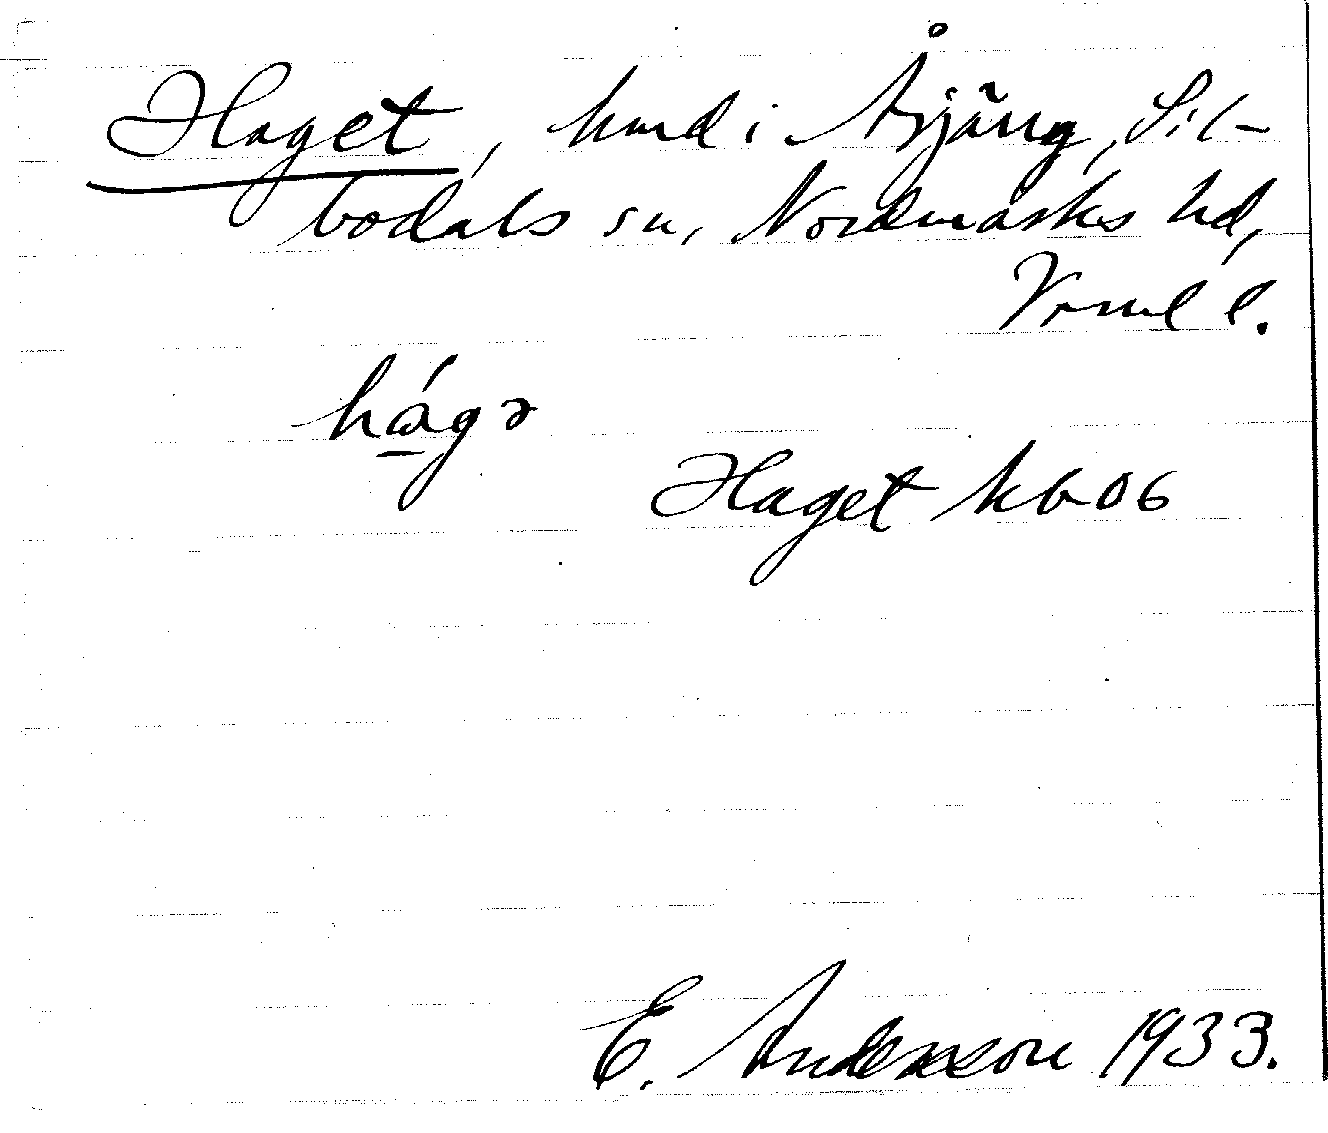 Haget, hmd i Årjäng, Sil-
bodals sn, Nordmarks hd,
Vrml l.
hágə
Haget kb 06
E. Andersson 1933.